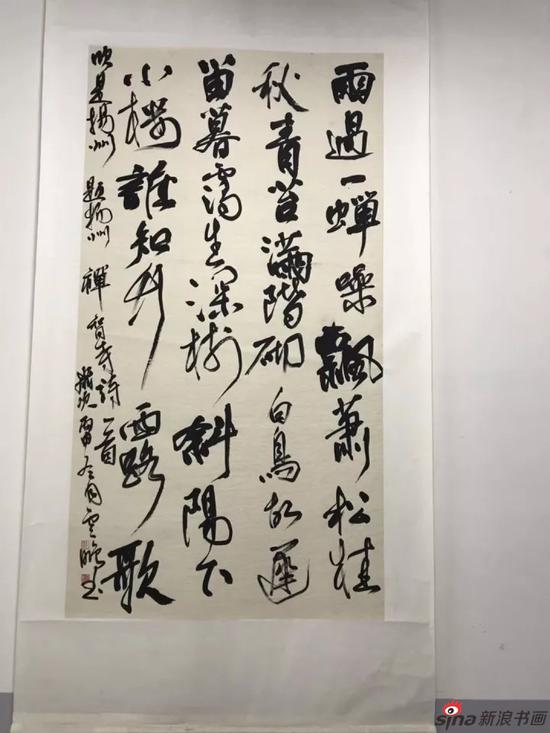 雨過一蟬噪飄蕭松桂
秋青苔滿階砌白鳥故遲
留暮靄生深樹斜陽下
小樓誰知竹西路歌
吹是揚州 題揚州 禪智寺詩一首
歲次丙申冬月雲
sina 新浪书画